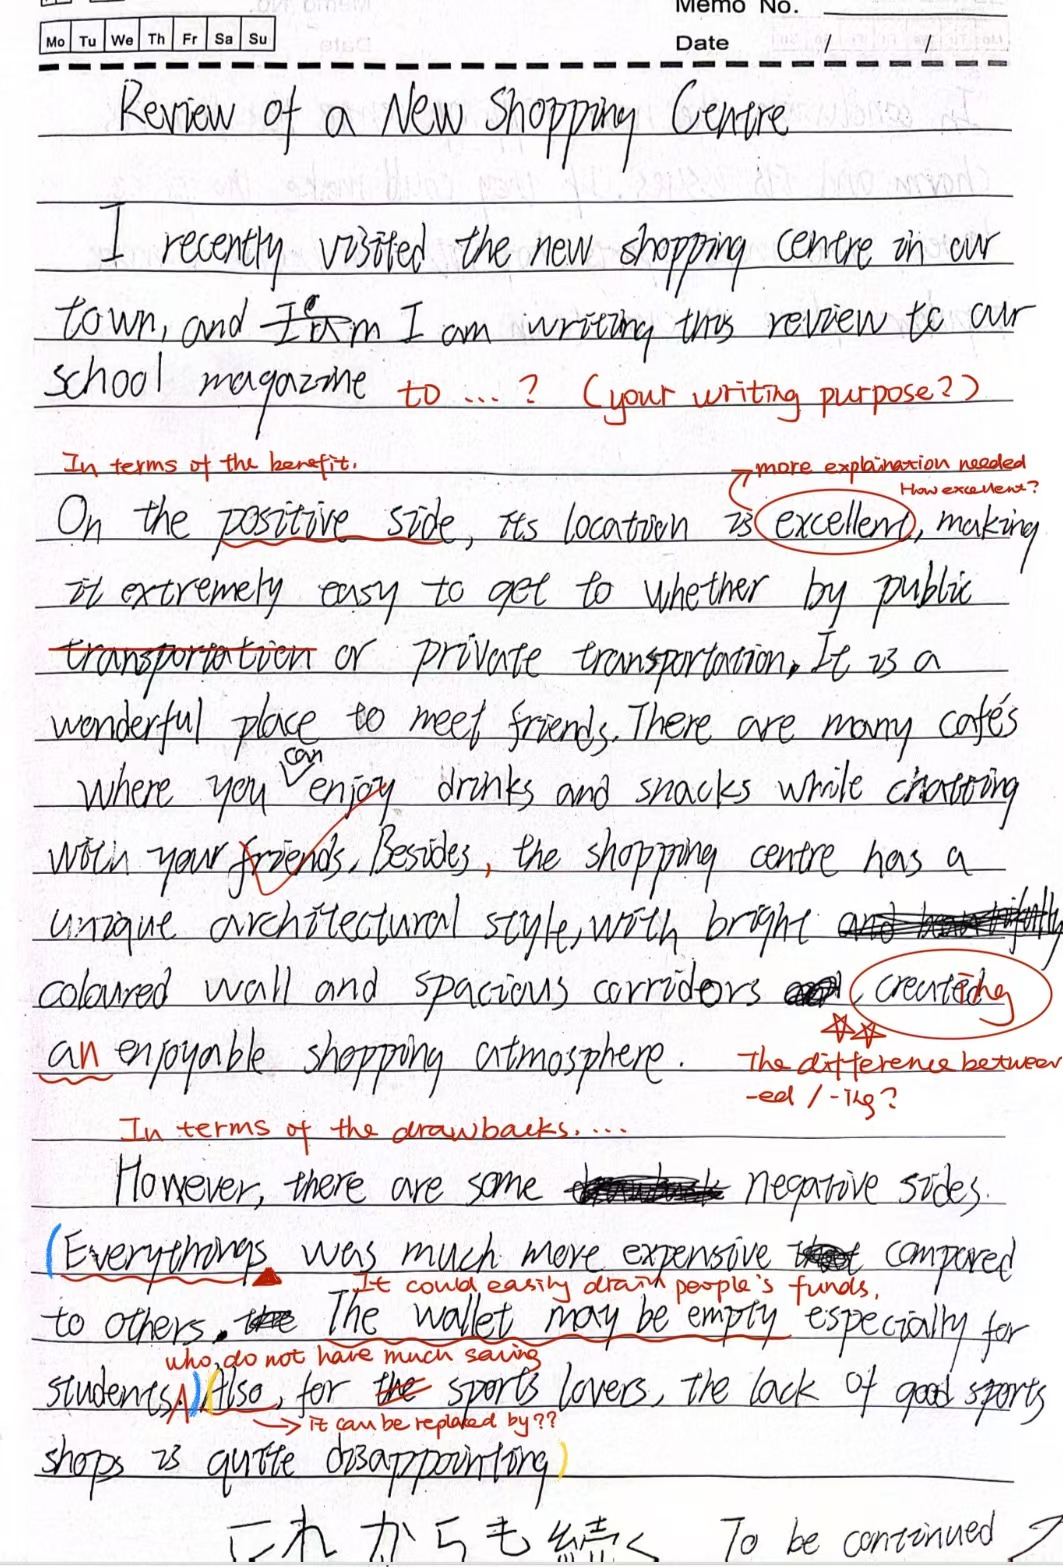 Memo No.
Mo Tu We Th Fr Sa Su
Date / /
Review of a New Shopping Centre
I recently visited the new shopping centre in our
town, and I am I am writing this review to our
school magazine to ...? (your writing purpose?)
In terms of the benefit.
more explaination needed
How excellent?
On the positive side, its location is excellent, making
it extremely easy to get to whether by public
transportation or private transportation. It is a
wonderful place to meet friends. There are many cafés
can
where you enjoy drinks and snacks while chatting
with your friends. Besides, the shopping centre has a
unique architectural style, with bright and
coloured wall and spacious corridors, creating
an enjoyable shopping atmosphere.
The difference between
-ed / -ing?
In terms of the drawbacks....
However, there are some negative sides.
(Everythings was much more expensive compared
It could easily drain people's funds,
to others. the The wallet may be empty especially for
who do not have much saving
students.) (Also, for the sports lovers, the lack of good sports
it can be replaced by??
shops is quite disappointing)
これからも続く To be continued